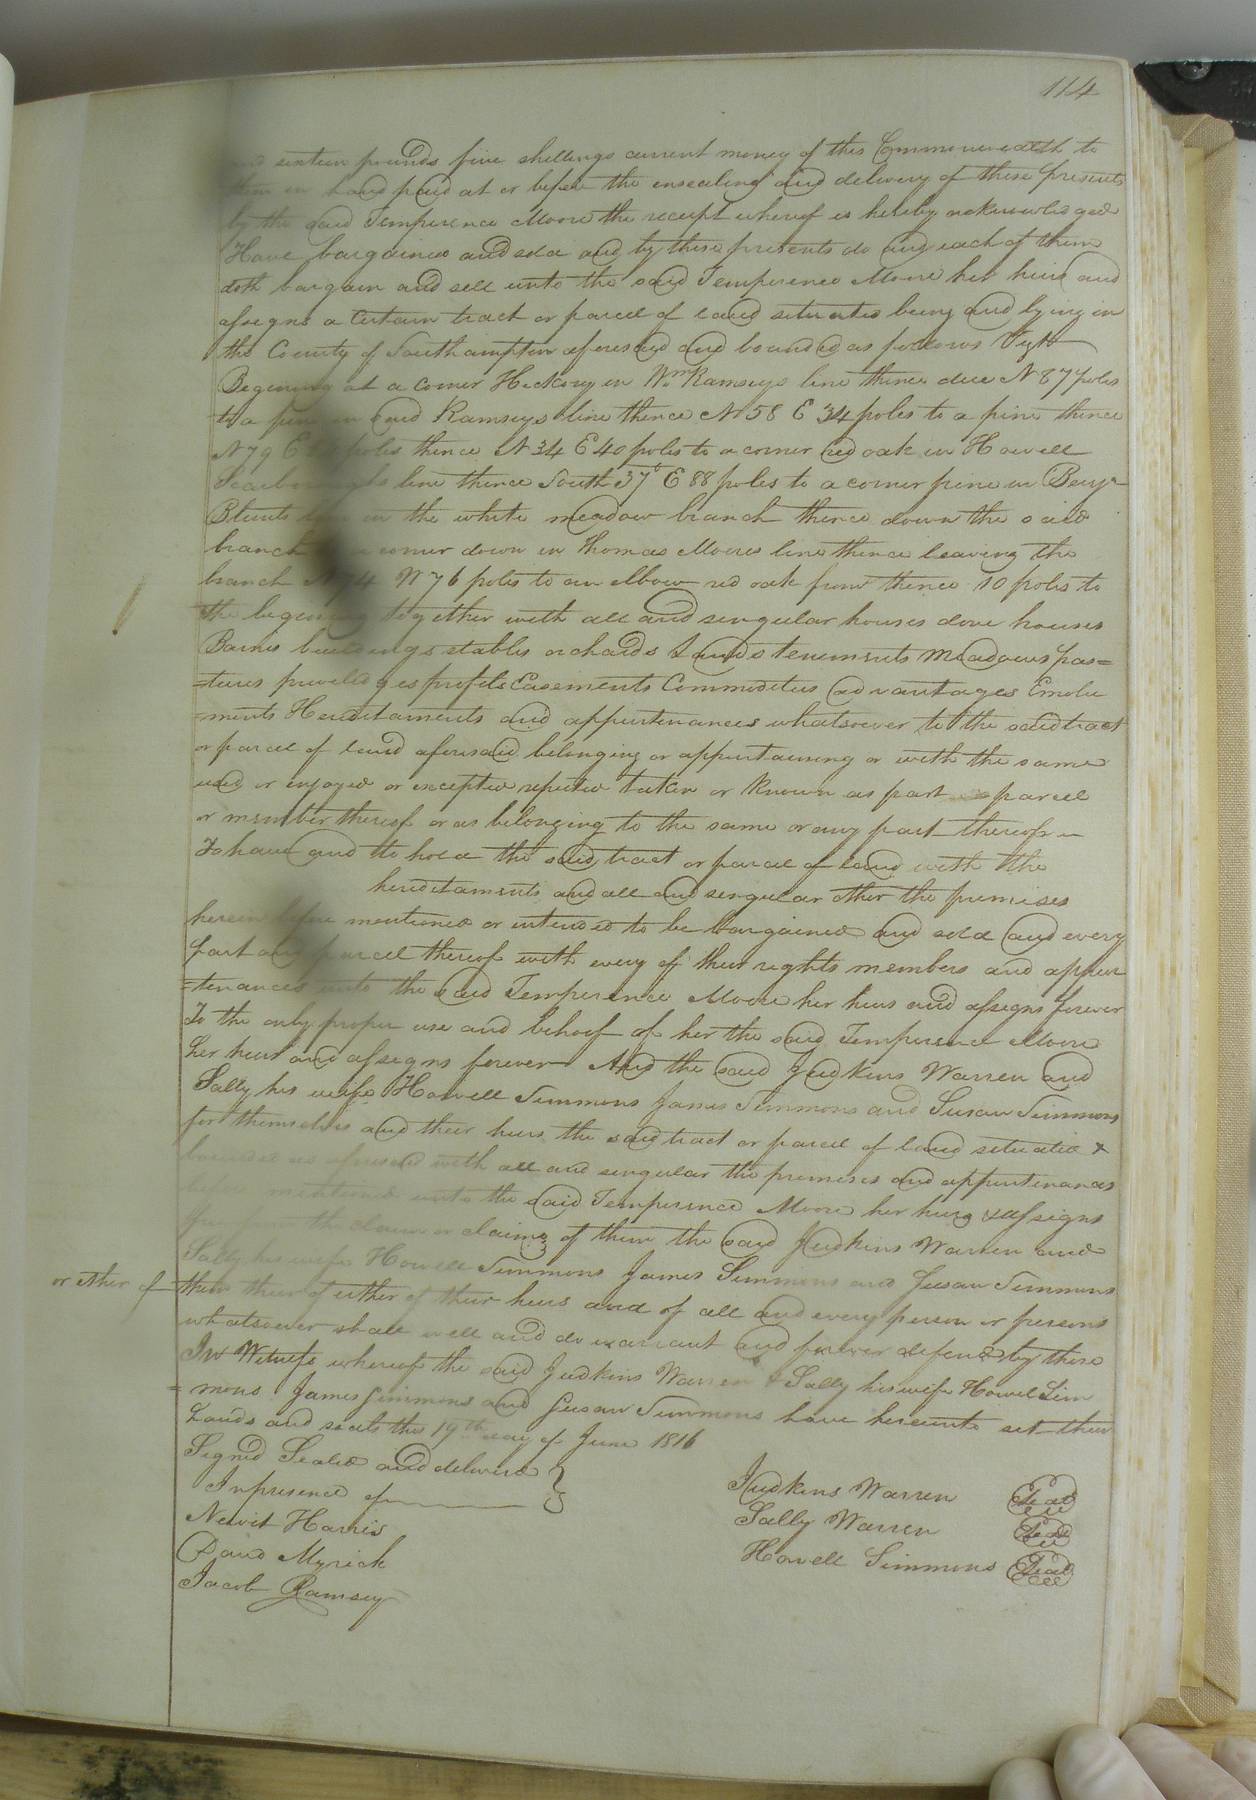 114
and sixteen pounds five shillings current money of this Commonwealth to
them in hand paid at or before the ensealing and delivery of these presents
by the said Temperence Moore the receipt whereof is hereby acknowledged
Have bargained and sold and by these presents do and each of them
doth bargain and sell unto the said Temperence Moore her heirs and
assigns a Certain tract or parcel of land situated being and lying in
the County of Southampton aforesaid and bounded as follows Vizt
Begining at a corner Hickory in Wm Ramseys line thence due N 87 poles
to a pine in said Ramseys line thence N 58 E 34 poles to a pine thence
N 79 E poles thence N 34 E 40 poles to a corner red oak in Howell
Scarboroughs line thence South 37° E 88 poles to a corner pine in Benja
Blunts line in the white meadow branch thence down the said
branch a corner down in Thomas Moores line thence leaving the
branch N 74 W 76 poles to an elbow red oak from thence 10 poles to
the begining together with all and singular houses dove houses
Barns buildings stables orchards Lands tenements Meadows pas=
=tures priveledges profits Easements Commodities advantages Emolu
=ments Hereditaments and appurtenances whatsoever to the said tract
or parcel of land aforesaid belonging or appurtaining or with the same
used or enjoyed or excepted reputed taken or known as part parcel
or member thereof or as belonging to the same or any part thereof
To have and to hold the said tract or parcel of land with the
hereditaments and all and singular other the premises
herein before mentioned or intended to be bargained and sold and every
part and parcel thereof with every of their rights members and appur
=tenances unto the said Temperence Moore her heirs and assigns forever
To the only proper use and behoof of her the said Temperence Moore
her heirs and assigns forever And the said Judkins Warren and
Sally his wife Howell Simmons James Simmons and Susan Simmons
for themselves and their heirs the said tract or parcel of land situated &
bounded as aforesaid with all and singular the premises and appurtenances
mentioned unto the said Temperence Moore her heirs & assigns
free from the claim or claims of them the said Judkins Warren and
Sally his wife Howell Simmons James Simmons and Susan Simmons
or ether of them their of either of their heirs and of all and every person or persons
whatsoever shall well and do warrant and forever defend by these
In Witness whereof the said Judkins Warren & Sally his wife Howel Sim
=mons James Simmons and Susan Simmons have hereunto set their
hands and seals this 19th day of June 1816
Signed Sealed and delivered }
In presence of
Newit Harris
David Myrick
Jacob Ramsey
Judkins Warren Seal
Sally Warren Seal
Howell Simmons Seal